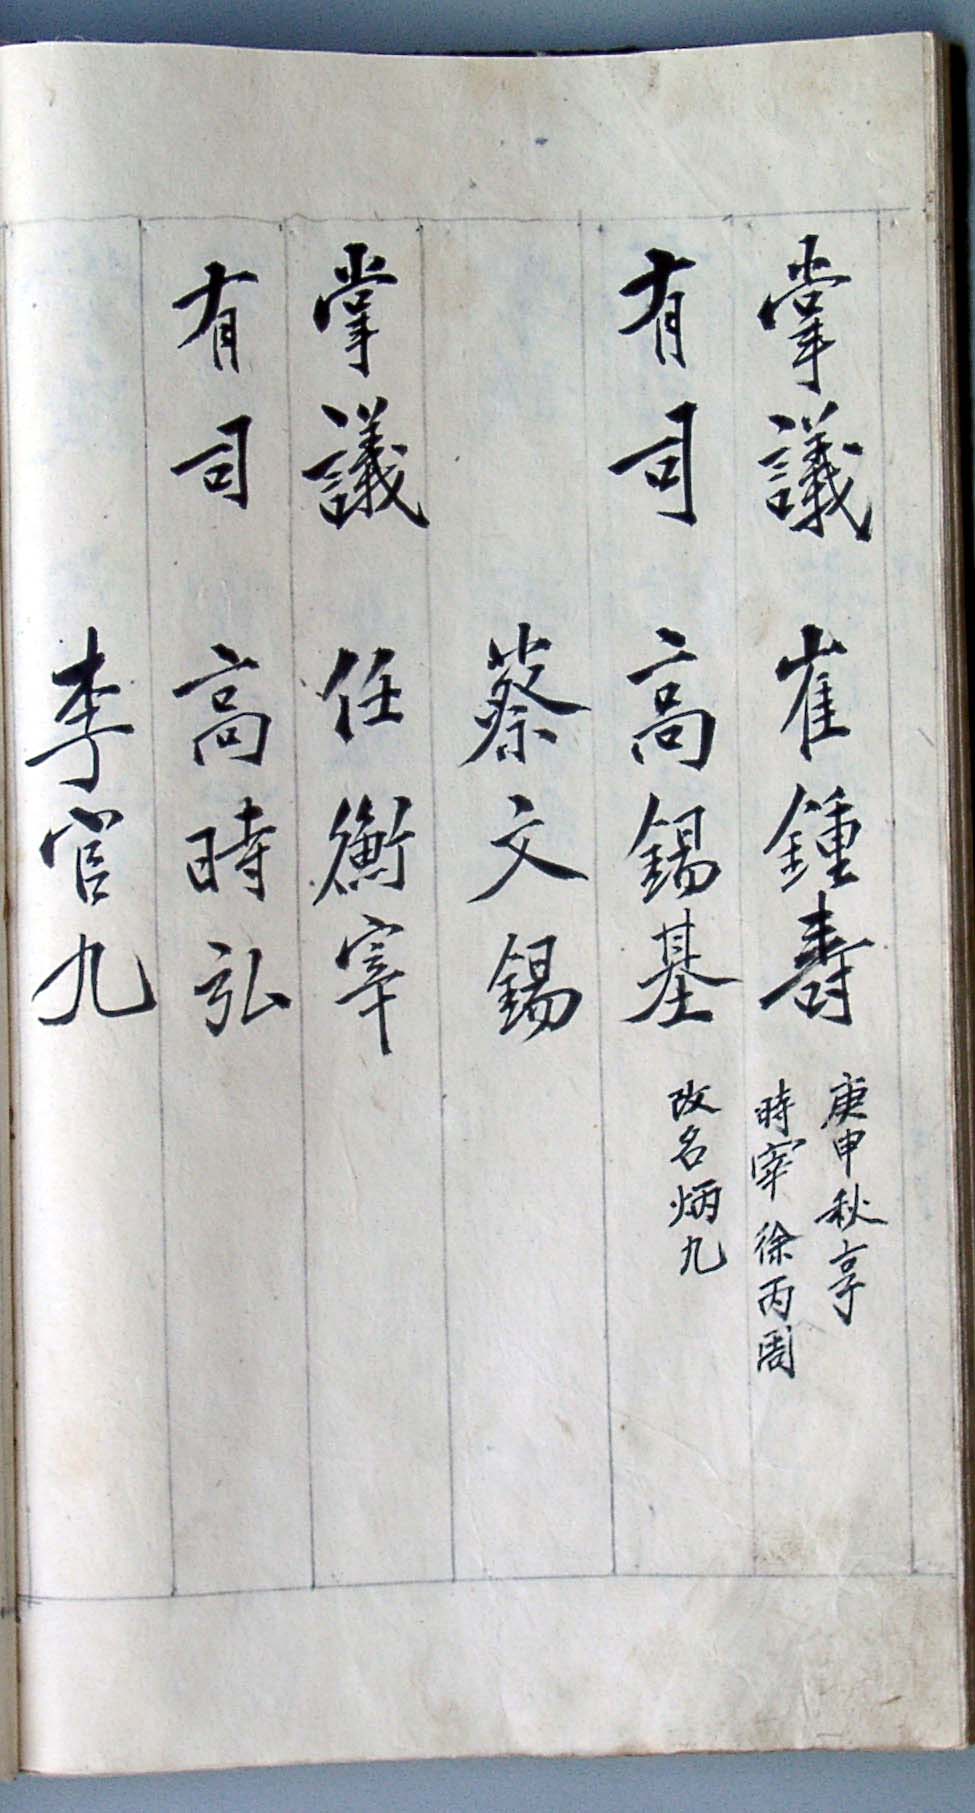 掌議 崔鍾壽 庚申秋享
時宰 徐丙周
有司 高錫基 改名炳九
蔡文錫
掌議 任衡宰
有司 高時弘
李官九